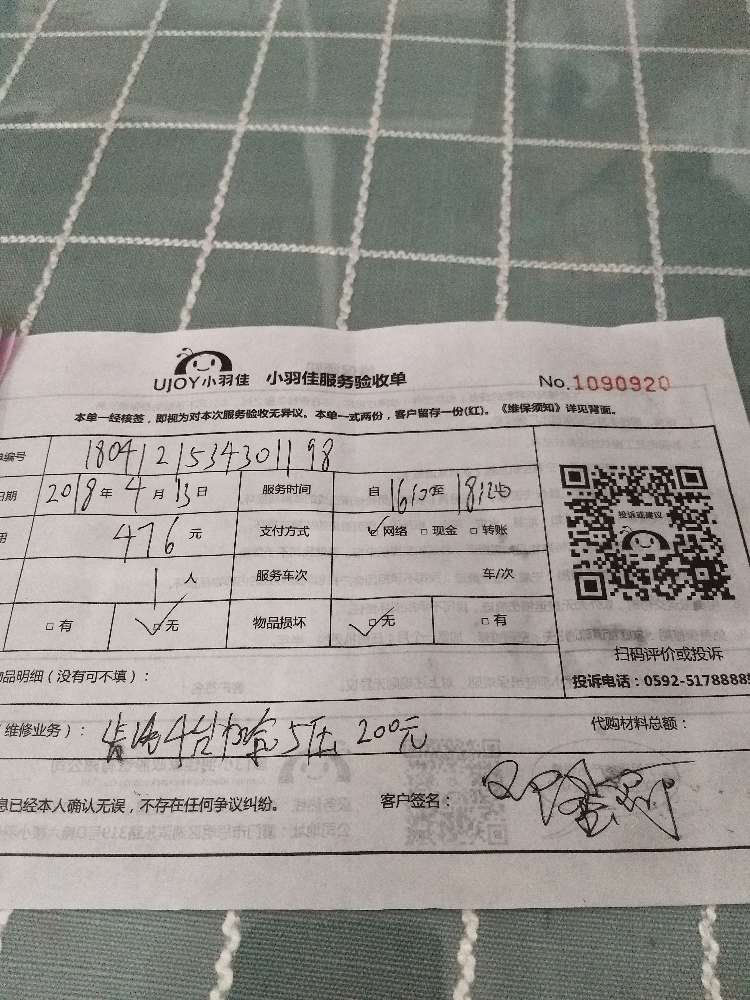 UJOY小羽佳 小羽佳服务验收单 No.1090920
本单一经核签，即视为对本次服务验收无异议。本单一式两份，客户留存一份(红)。《维保须知》详见背面。
编号 1804121534301198
日期 2018年4月13日 服务时间 自1610至18:20
投诉或建议
476元 支付方式 ☑网络 □现金 □转账
1人 服务车次 车/次
□有 ☑无 物品损坏 ☑无 □有
扫码评价或投诉
品明细（没有可不填）：
投诉电话：0592-5178888
维修业务）： 4台 5压 200元
代购材料总额：
息已经本人确认无误，不存在任何争议纠纷。 客户签名：